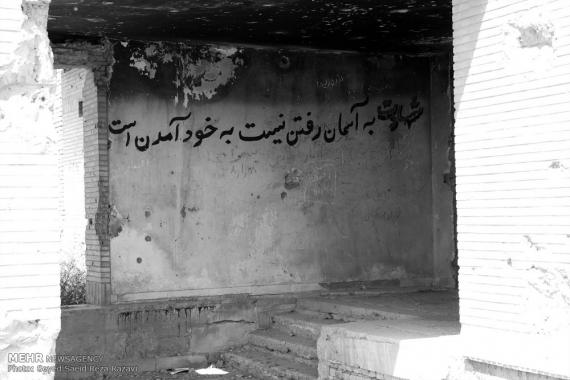 شهادت به آسمان رفتن نیست به خود آمدن است
MEHR NEWSAGENCY
Photo: Seyed Saeid Reza Razavi